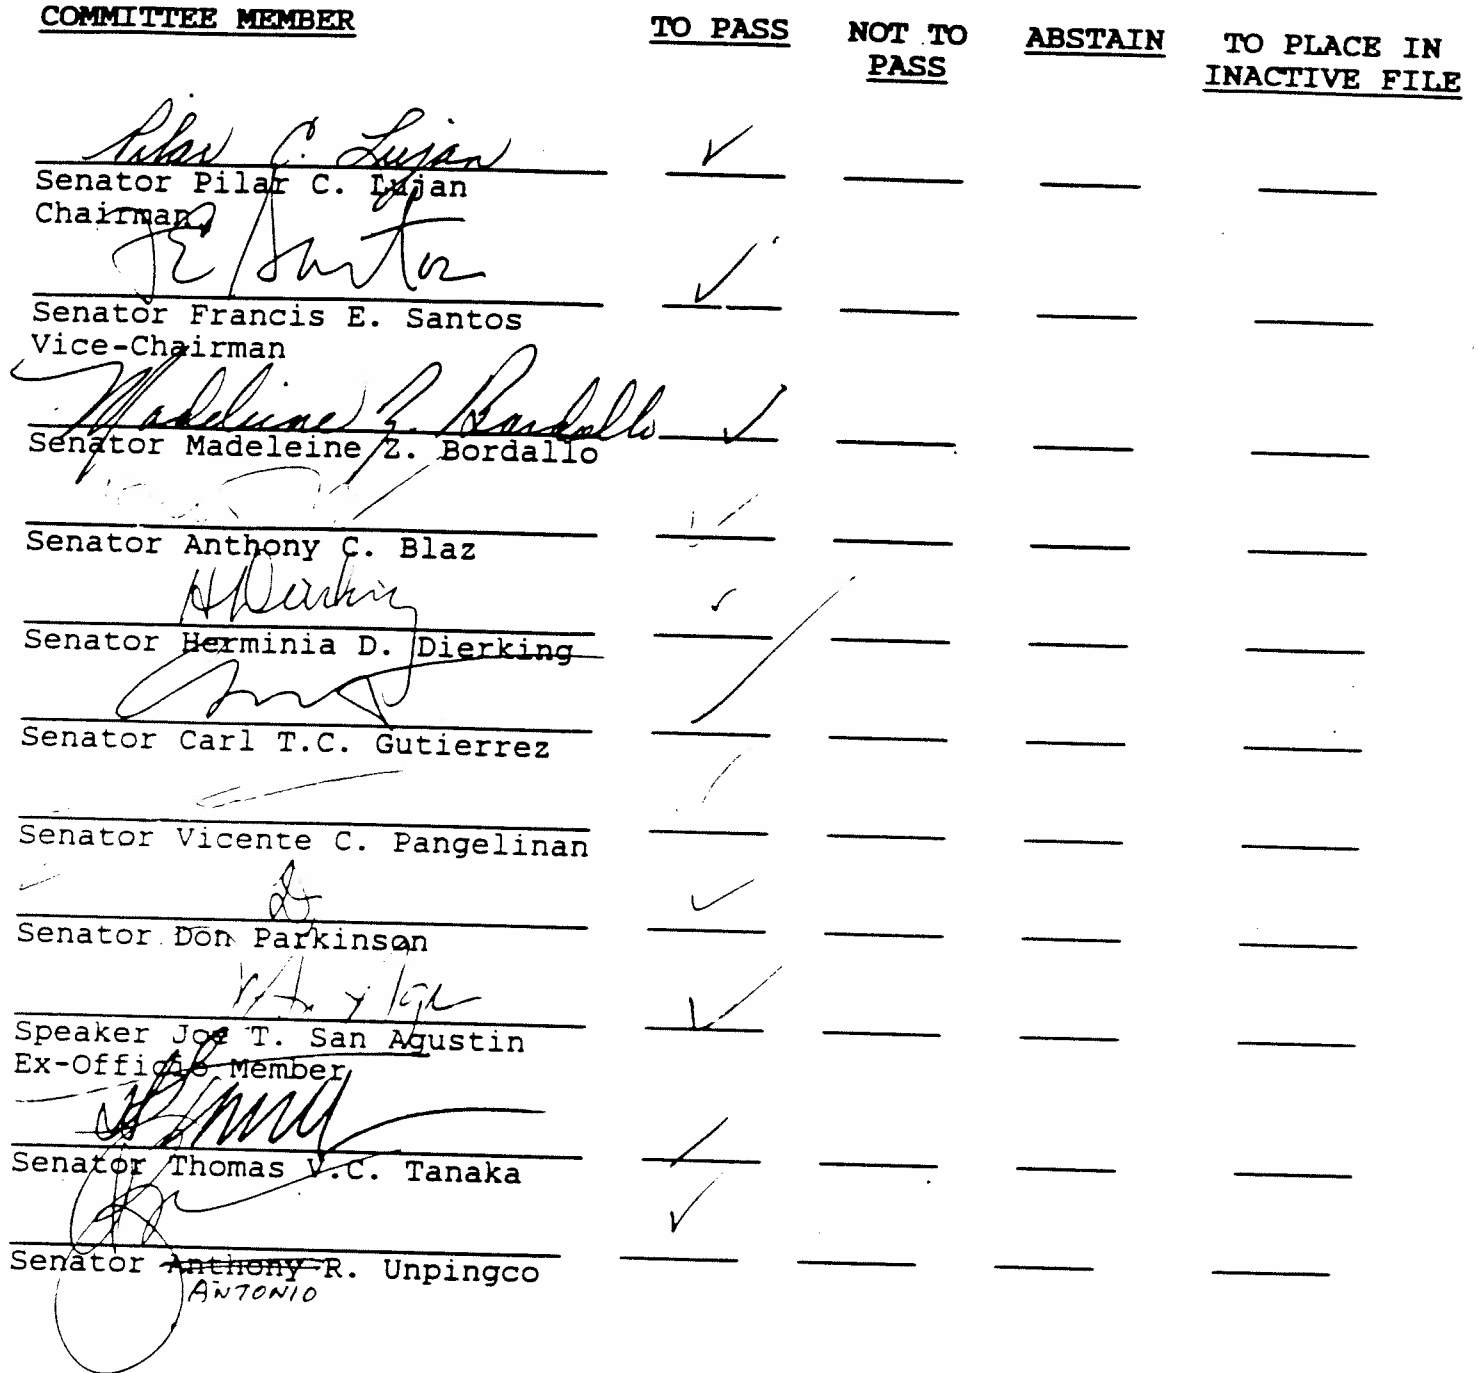 COMMITTEE MEMBER TO PASS NOT TO PASS ABSTAIN TO PLACE IN INACTIVE FILE
Pilar C. Lujan
Senator Pilar C. Lujan
Chairman
F E Santos
Senator Francis E. Santos
Vice-Chairman
Madeleine Z. Bordallo
Senator Madeleine Z. Bordallo
Senator Anthony C. Blaz
HDierking
Senator Herminia D. Dierking
Senator Carl T.C. Gutierrez
Senator Vicente C. Pangelinan
Senator Don Parkinson
Speaker Joe T. San Agustin
Ex-Officio Member
Senator Thomas V.C. Tanaka
Senator Anthony R. Unpingco
ANTONIO